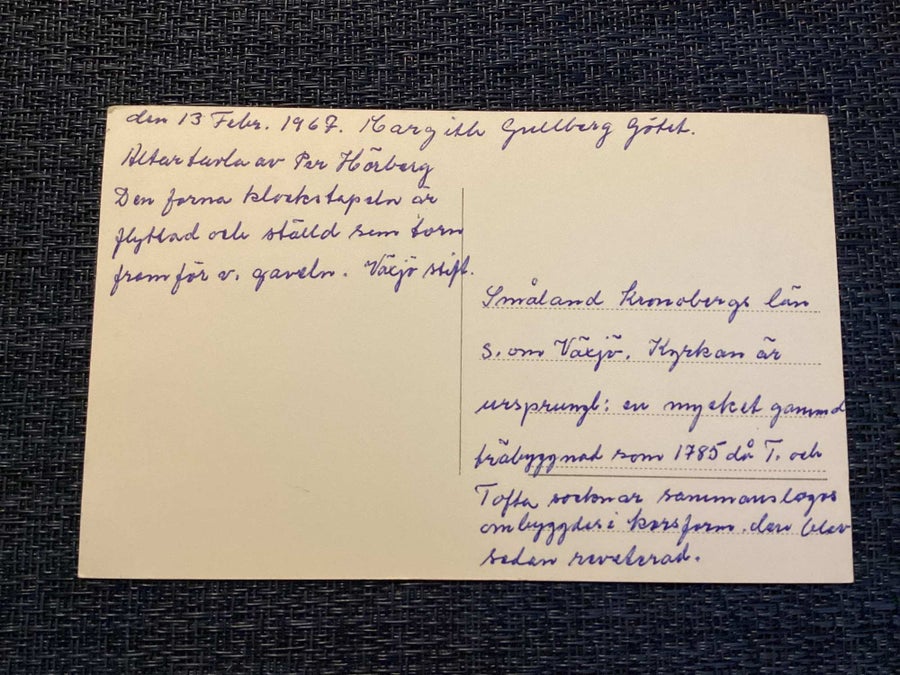 den 13 Febr. 1967. Margith Gullberg Götet.
Altartavla av Per Hörberg
Den forna klockstapeln är
flyttad och ställd som torn
framför v. gaveln. Växjö stift.
Småland Kronobergs län
s. om Växjö. Kyrkan är
ursprungl: en mycket gammal
träbyggnad som 1785 då T. och
Tofta socknar sammanslogos
ombyggdes i korsform. den blev
sedan reveterad.